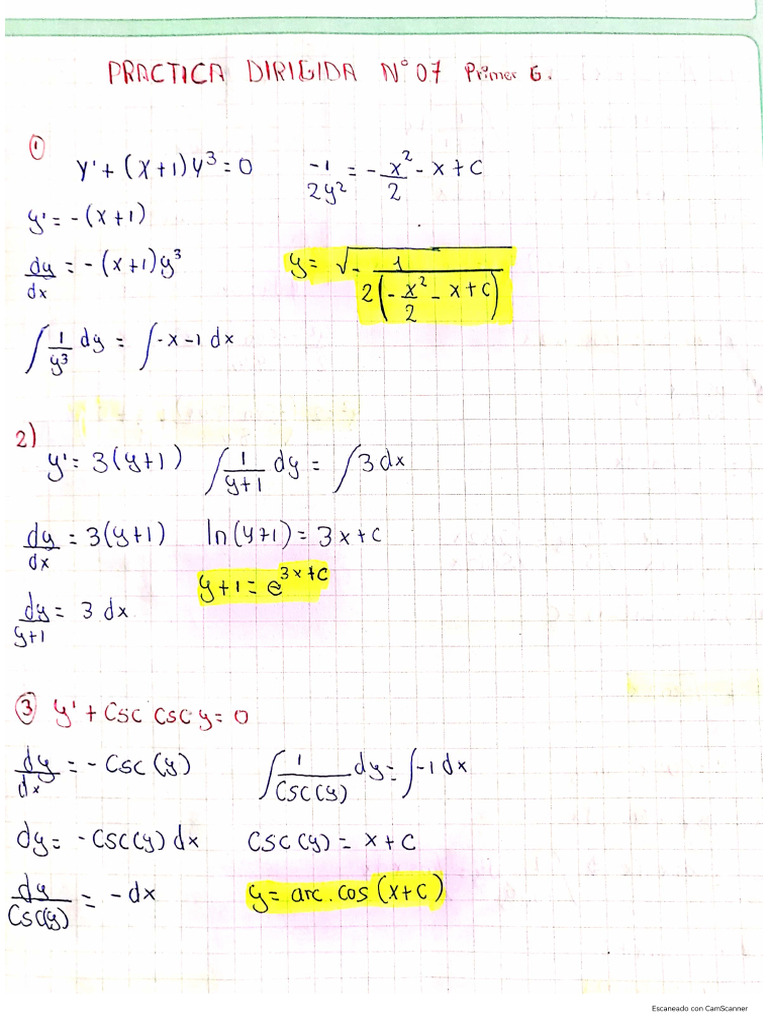 PRACTICA DIRIGIDA N° 07 Primer G.
①
y' + (x+1) y³ = 0
y' = -(x+1)
dy/dx = -(x+1)y³
∫ 1/y³ dy = ∫ -x-1 dx
-1/2y² = -x²/2 - x + c
y = √(-1/(2(-x²/2 - x + c)))
2)
y' = 3(y+1)
dy/dx = 3(y+1)
dy/y+1 = 3 dx
∫ 1/y+1 dy = ∫ 3 dx
ln(y+1) = 3x+c
y+1 = e^(3x+c)
③ y' + Csc csc y = 0
dy/dx = - Csc (y)
dy = -Csc(y) dx
dy/Csc(y) = -dx
∫ 1/Csc(y) dy = ∫ -1 dx
Csc (y) = x + c
y = arc.cos (x+c)
Escaneado con CamScanner